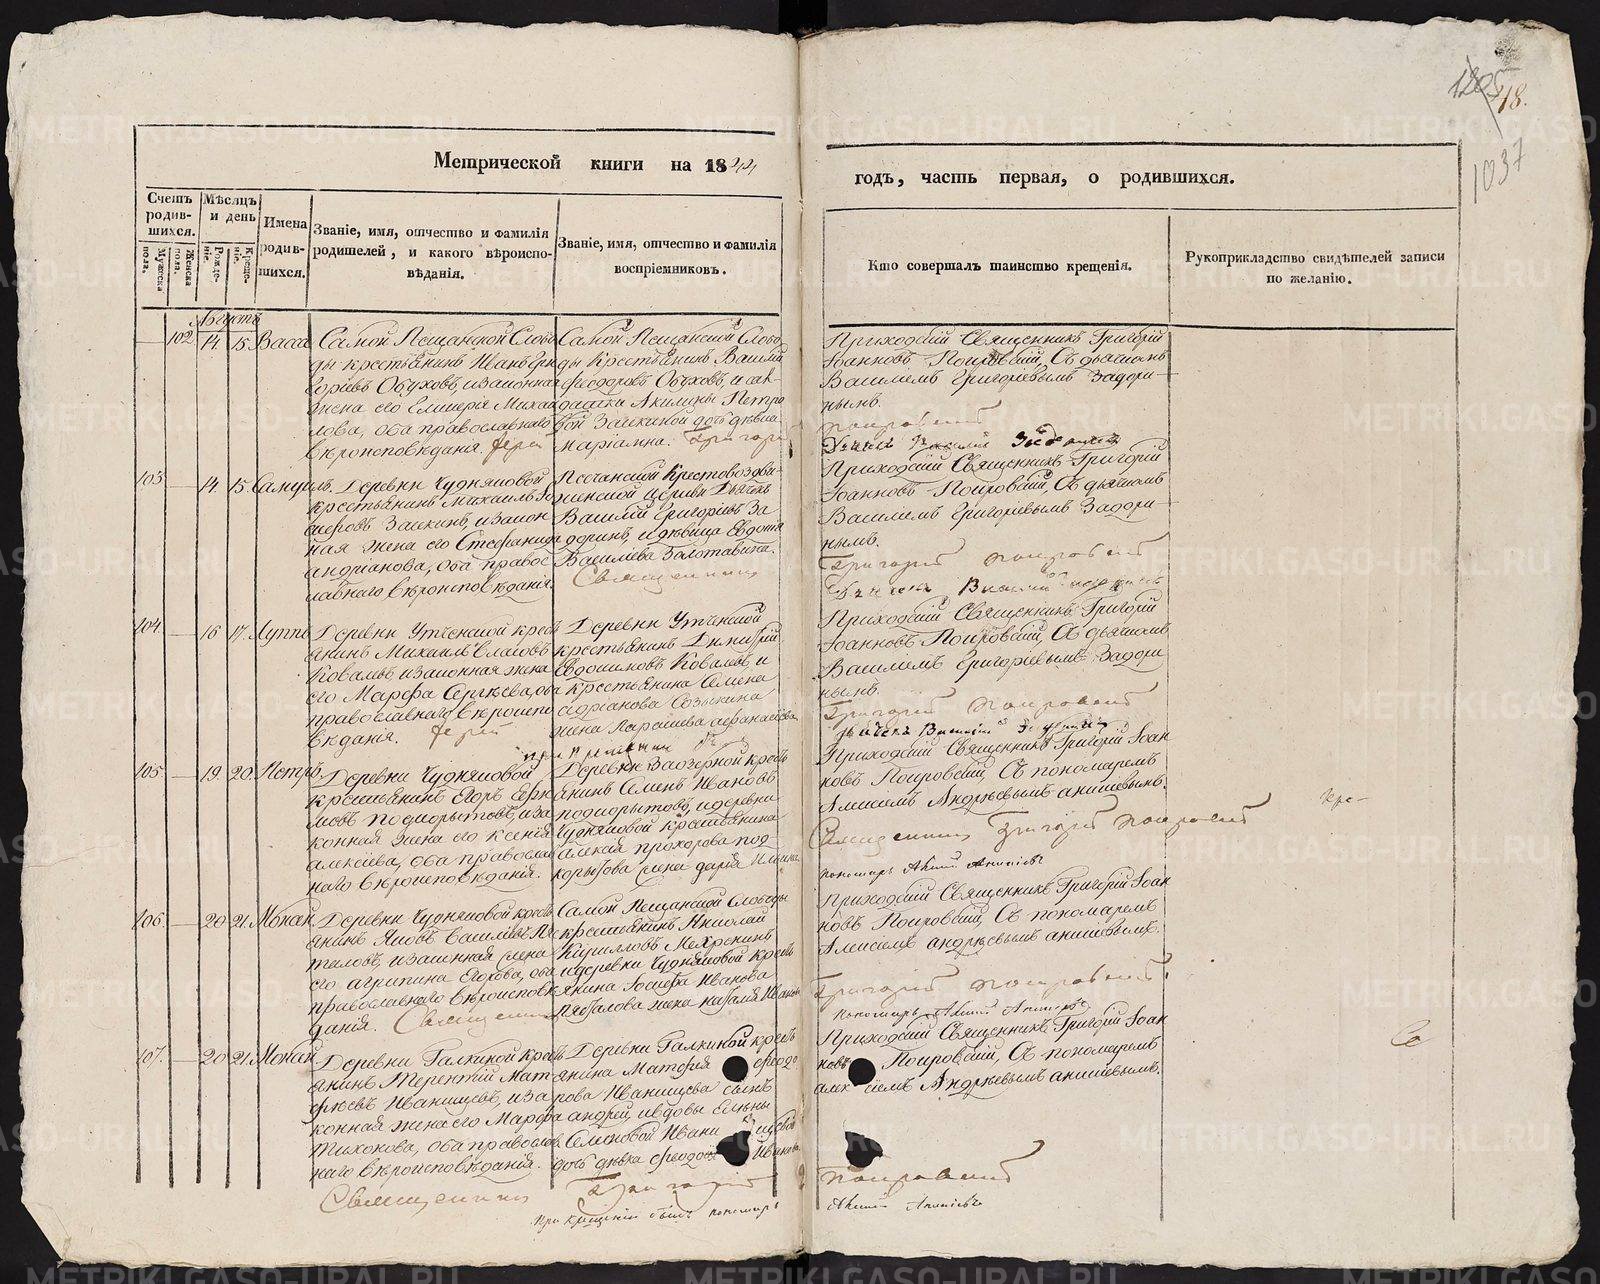 1205
18.
1037
Метрической книги на 1844
годъ, часть первая, о родившихся.
Счетъ родив-шихся.
Мѣсяцъ и день
Имена родив-шихся.
Званіе, имя, отчество и фамилія родителей, и какого вѣроиспо-вѣданія.
Званіе, имя, отчество и фамилія воспріемниковъ.
Кто совершалъ таинство крещенія.
Рукоприкладство свидѣтелей записи по желанію.
Мужеска пола.
Женска пола.
Рожде-ніе.
Креще-ніе.
Августъ
102 14. 15. Васса
Самой Песчанской Слобо
ды крестьянинъ Иванъ Гри
горіевъ Обуховъ, и законная
жена его Гликерія Михаи
лова, оба православнаго
вѣроисповѣданія. Іерей
Самой Песчанской Слобо
ды Крестьянинъ Василій
Феодоровъ Обуховъ, и сол-
датки Акилины Петро
вой Заикиной дочь дѣвица
Маріамна. Григорій
Приходскій Священникъ Григорій
Іоанновъ Покровскій, Съ дьячкомъ
Василіемъ Григоріевымъ Задори-
нымъ.
Покровскій
Дьячекъ Василій Задоринъ
103 14. 15. Самуилъ.
Деревни Чудняковой
крестьянинъ Михаилъ Іо
сифовъ Заикинъ, и закон
ная жена его Стефанида
Андріанова, оба правос
лавнаго вѣроисповѣданія.
Песчанской Крестовоздви-
женской церкви Дьячекъ
Василій Григоріевъ За
доринъ, и дѣвица Евдокія
Василіева Золотавина.
Священникъ
Приходскій Священникъ Григорій
Іоанновъ Покровскій, Съ дьячкомъ
Василіемъ Григоріевымъ Задори
нымъ.
Григорій Покровскій
Дьячекъ Василій Задоринъ
104. 16 17. Луппъ
Деревни Утченской крест
янинъ Михаилъ
Ковалевъ и законная жена
его Марфа Сергѣева, оба
православнаго вѣроиспо
вѣданія. Іерей
Деревни Утченской
крестьянинъ Димитрій
Евдокимовъ Ковалевъ, и
крестьянина Семена
Адріанова Созыкина
жена Парасковья Афанасіева
Приходскій Священникъ Григорій
Іоанновъ Покровскій, Съ дьячкомъ
Василіемъ Григоріевымъ Задори
нымъ.
Григорій Покровскій
Дьячекъ Василій Задоринъ
105. 19. 20. Петръ.
Деревни Чудняковой
крестьянинъ Егоръ
Подкорытовъ, и за
конная жена его Ксенія
Алексіева, оба православ
наго вѣроисповѣданія.
Деревни Заозерной крест
янинъ Семенъ Ивановъ
Подкорытовъ, и деревни
Чудняковой крестьянина
Алексія Прохорова Под-
корытова жена Дарія Ильина
Приходскій Священникъ Григорій Іоан
новъ Покровскій, Съ пономаремъ
Алексіемъ Андрѣевымъ
Священникъ Григорій Покровскій
пономарь Алексій
106. 20 21. Мокей.
Деревни Чудняковой крест
янинъ Яковъ Василіевъ Пя
таловъ, и законная жена
его Агрипина Егорова, оба
православнаго вѣроисповѣ
данія. Священникъ
Самой Песчанской Слободы
крестьянинъ Николай
Кирилловъ
и деревни Чудняковой крест
янина Іосифа Иванова
Пяталова жена Наталія Иванова
Приходскій Священникъ Григорій Іоан
новъ Покровскій, Съ пономаремъ
Алексіемъ Андрѣевымъ
Григорій Покровскій
пономарь Алексій
107. 20 21. Мокей.
Деревни Галкиной крест
янинъ Терентій Мат
фѣевъ Иванищевъ, и за
конная жена его Марфа
Тихонова, оба православ
наго вѣроисповѣданія.
Священникъ
Деревни Галкиной крест
янина Матфея Феодо
рова Иванищева сынъ
Андрей, и вдовы Елены
Семеновой Ивани щевой
дочь дѣвка Феодо Иванова
Григорій
при крещеніи былъ пономарь
Приходскій Священникъ Григорій Іоан
новъ Покровскій, Съ пономаремъ
Алексіемъ Андрѣевымъ
Покровскій
Алексій
METRIKI.GASO-URAL.RU